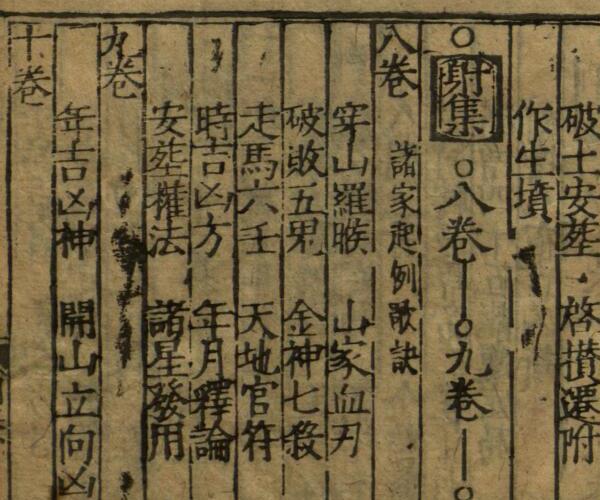 破土安葬 啓攢遷附
作生墳
○附集○八卷—○九卷—○
八卷 諸家起例歌訣
穿山羅睺 山家血刃
破敗五鬼 金神七殺
走馬六壬 天地官符
時吉凶方 年月釋論
安葬權法 諸星發用
九卷
年吉凶神 開山立向凶
十卷